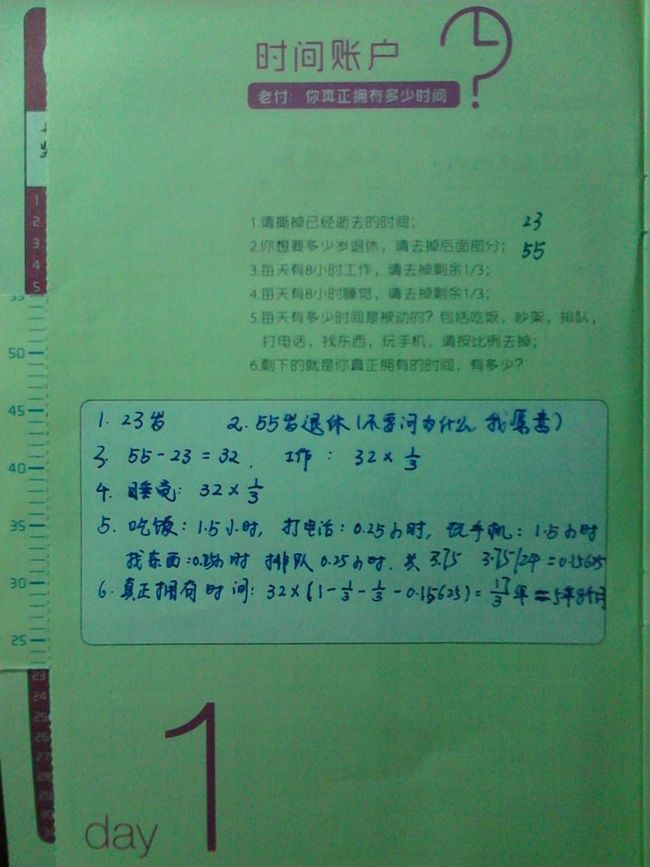 时间账户
老付：你真正拥有多少时间
1.请撕掉已经逝去的时间； 23
2.你想要多少岁退休，请去掉后面部分； 55
3.每天有8小时工作，请去掉剩余1/3；
4.每天有8小时睡觉，请去掉剩余1/3；
5.每天有多少时间是被动的？包括吃饭，吵架，排队，
打电话，找东西，玩手机，请按比例去掉；
6.剩下的就是你真正拥有的时间，有多少？
1. 23岁 2. 55岁退休（不要问为什么 我愿意）
3. 55-23=32. 工作：32×1/3
4. 睡觉：32×1/3
5. 吃饭：1.5小时，打电话：0.25小时，玩手机：1.5小时
找东西：0.25小时 排队0.25小时. 共 3.75 3.75/24=0.15625
6. 真正拥有时间：32×(1-1/3-1/3-0.15625)=17/3年=5年8个月
1
2
3
4
5
55
50
45
40
35
30
25
23
24
25
26
27
28
29
day 1